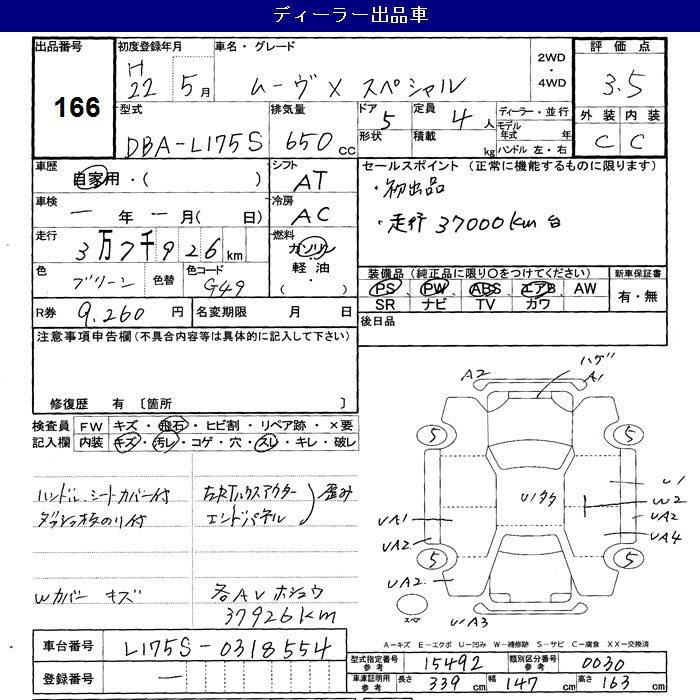 ディーラー出品車
出品番号 166
初度登録年月 H22 5月
車名・グレード ムーヴ X スペシャル
2WD・4WD
評価点 3.5
外装 内装
C C
型式 DBA-L175S
排気量 650cc
ドア 5
形状
定員 4人
積載 kg
ディーラー・並行
モデル年式 年
ハンドル 左・右
車歴 自家用・( )
シフト AT
車検 一年一月( 日)
冷房 AC
走行 3万7千926km
燃料 ガソリン・軽油・( )
色 グリーン
色替
色コード G49
R券 9.260円
名変期限 月 日
セールスポイント (正常に機能するものに限ります)
・初出品
・走行 37000km 台
装備品 (純正品に限り○をつけてください)
PS PW ABS エアB AW
SR ナビ TV カワ
新車保証書
有・無
後日品
注意事項申告欄 (不具合内容等は具体的に記入して下さい)
修復歴 有 〔箇所 〕
検査員記入欄
FW キズ・飛石・ヒビ割・リペア跡・×要
内装 キズ・汚レ・コゲ・穴・スレ・キレ・破レ
ハンドル、シートカバー付
ダッシュ板のり付
Wカバー キズ
エンドパネル
歪み
各AV ホシュウ
37926km
A2
ハゲ
A1
5
5
U1
W2
UA2
UA4
UA1
UA2
5
5
UA2
UA3
スペア
A-キズ E-エクボ U-凹み W-補修跡 S-サビ C-腐食 XX-交換済
車台番号 L175S-0318554
登録番号 一
型式指定番号 参考 15492
類別区分番号 参考 0030
車庫証明用 参考 長さ 339cm 幅 147cm 高さ 163cm